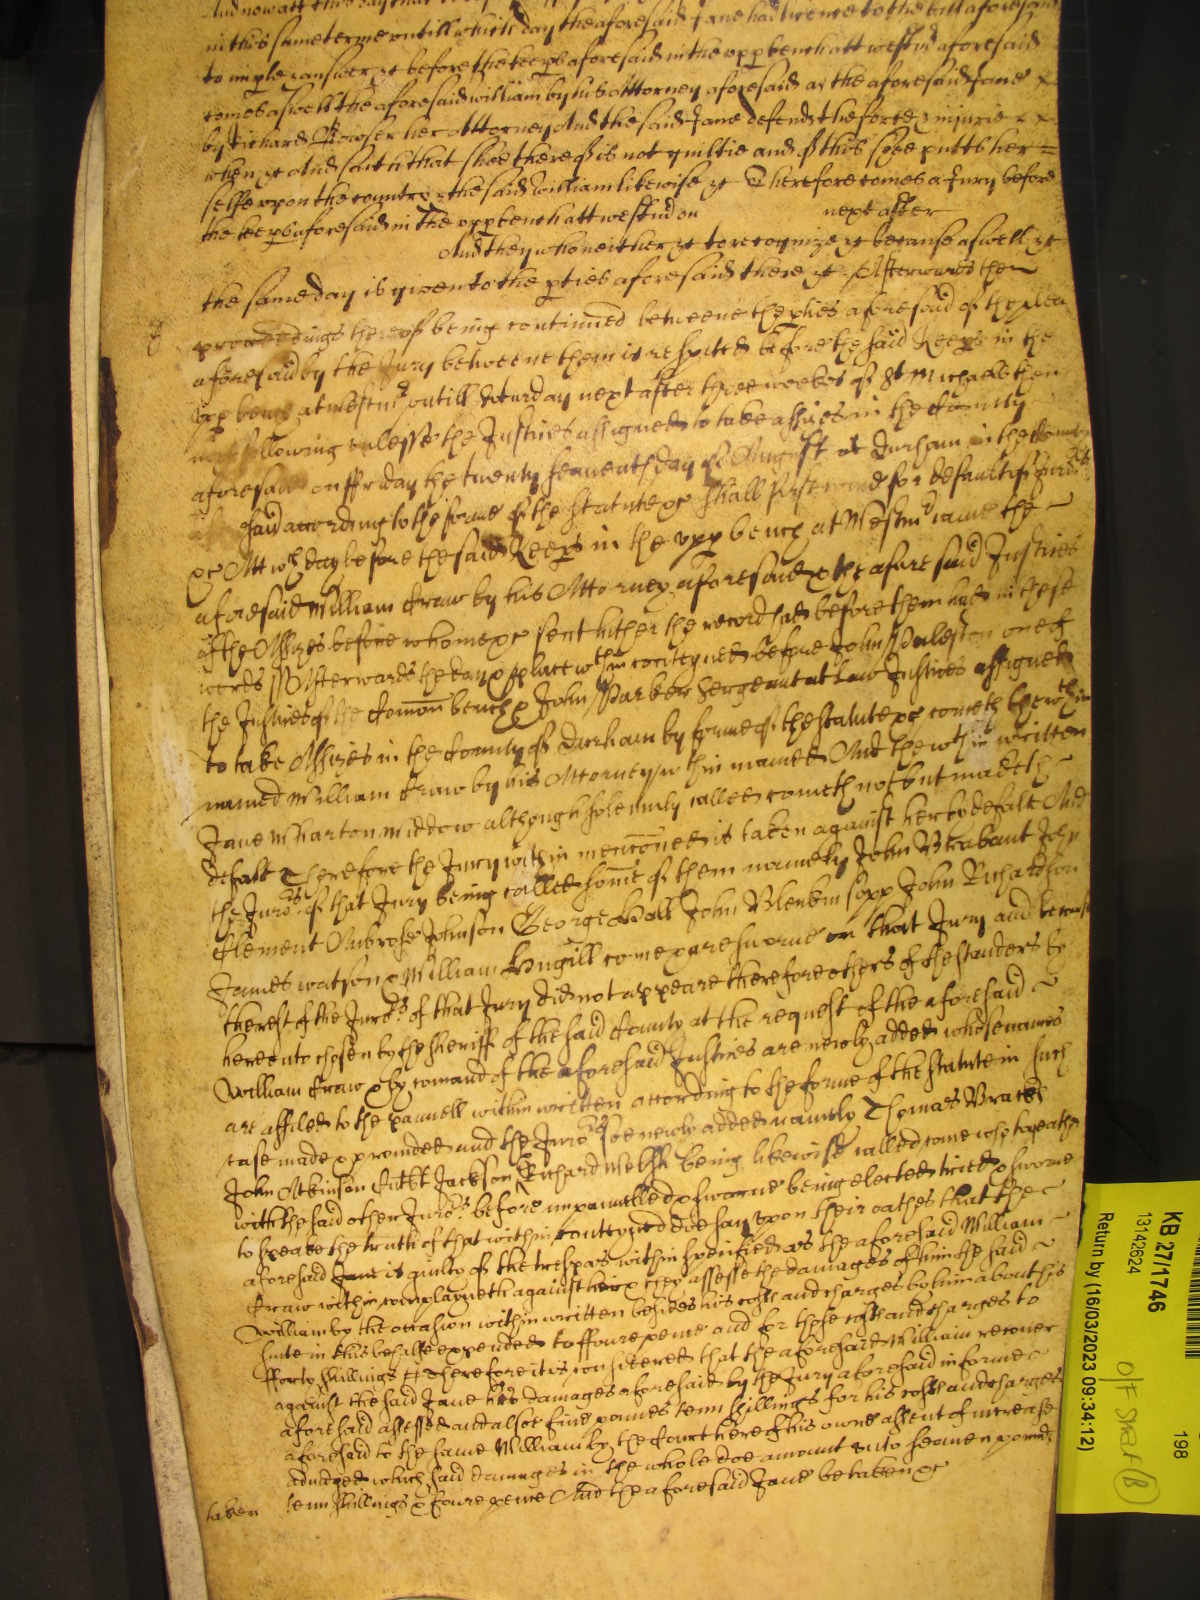 And now att this day that
in this same terme untill which day the aforesaid Jane had licence to the bill aforesaid
to imple & answer &c before the keeps aforesaid in the upp bench att westmr aforesaid
comes aswell the aforesaid william by his Attorney aforesaid as the aforesaid Jane
by Richard Bowser her Attorney And the said Jane defends the force & injurie
when &c And saith that shee thereof is not guiltie and of this shee putts her
selfe upon the country & the said william likewise &c Therefore comes a Jury before
the keeps aforesaid in the upp bench att westmr on next after
And they who neither &c to recognize &c because aswell &c
the same day is given to the pties aforesaid there &c Afterwards the
proceedings thereof being continued betweene the pties aforesaid of the plea
aforesaid by the Jury betweene them is respited before the said Keeps in the
upp bench at westmr untill Saturday next after three weekes of St Michael then
next following unlesse the Justices assigned to take assizes in the County
aforesaid on ffriday the twenty seaventh day of August at Durham in the County
said according to the forme of the statute &c shall first come for default of Jurors
&c Att wch day before the said Keeps in the upp bench at Westmr came the
aforesaid William Craw by his Attorney aforesaid & the aforesaid Justices
of the Assizes before whome &c sent hither the record had before them had in these
words Afterwards the day & place wthin conteyned before John Puleston one of
the Justices of the Comon bench & John Parker Sergeant at Law Justices assigned
to take Assizes in the County of Durham by forme of the statute &c cometh the wthin
named William Craw by his Attorney wthin named And the wthin written
Jane Wharton Widdow although solemnly called cometh not but maketh
default Therefore the Jury within mencioned is taken against her by default And
the Juros of that Jury being called some of them namely John Brabant John
Clement Ambrose Johnson George Hall John Blenkinsopp John Richardson
James watson & William Hugill come & are sworne on that Jury and because
the rest of the Juros of that Jury did not appeare therefore others of the standers by
hereunto chosen by the sheriff of the said County at the request of the aforesaid
William Craw & by comand of the aforesaid Justices are newly added whose names
are affiled to the pannell within written according to the forme of the statute in such
case made & provided and the Juros soe newly added namely Thomas
John Atkinson Cutbt Jackson Richard Welsh being likewise called come who togeather
with the said other Juros before impannelled & sworne being elected tried & sworne
to speake the truth of that within conteyned doe say upon their oathes that the
aforesaid Jane is guilty of the trespas within specified as the aforesaid William
Craw within complayneth against her & they assesse the damages of him the said
William by the occasion within written besides his costs and charges by him about his
suite in this behalfe expended to ffoure pence and for those costs and charges to
fforty shillings Therefore it is considered that the aforesaid William recover
against the said Jane his damages aforesaid by the Jury aforesaid in forme
aforesaid assessed and alsoe five pounds tenn shillings for his costs and charges
aforesaid to the same William by the Court here of his owne assent of increase
adiudged which said damages in the whole doe amount unto seaven pounds
tenn shillings & foure pence And the aforesaid Jane be taken &c
taken
KB 27/1746
13142624
198
Return by (16/03/2023 09:34:12)